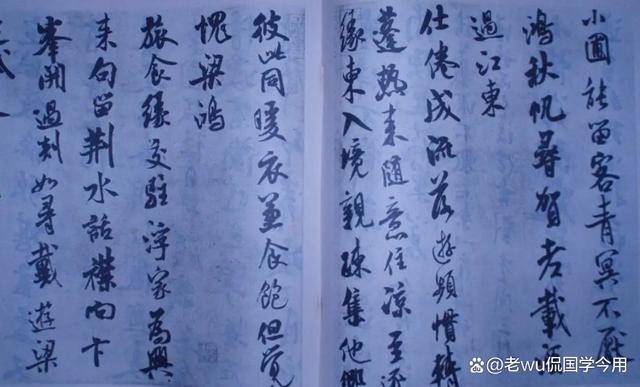 小圃能留客青冥不厭
鴻秋帆尋賀老載酒
過江東
仕倦成流落遊頻慣轉
蓬熱来隨意住涼至逐
緣東入境親疎集他鄉
彼此同暖衣兼食飽但覺
愧梁鴻
旅食緣交駐浮家為興
来句留荆水話襟向卞
峯開過剡如尋戴遊梁
老wu侃国学今用